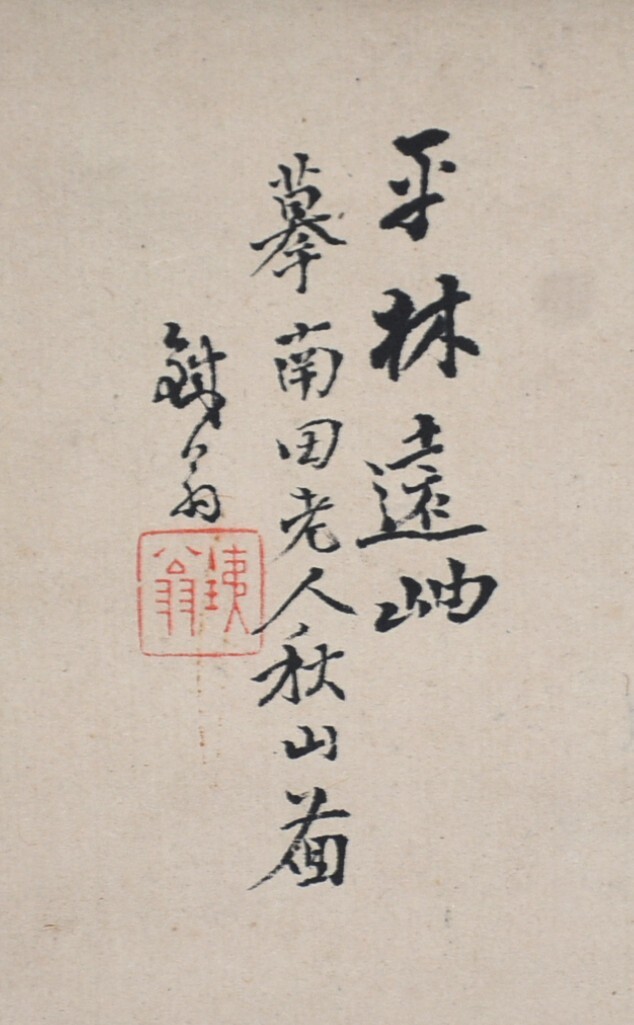 平林遠岫
摹南田老人秋山啚
鐵翁
銕翁